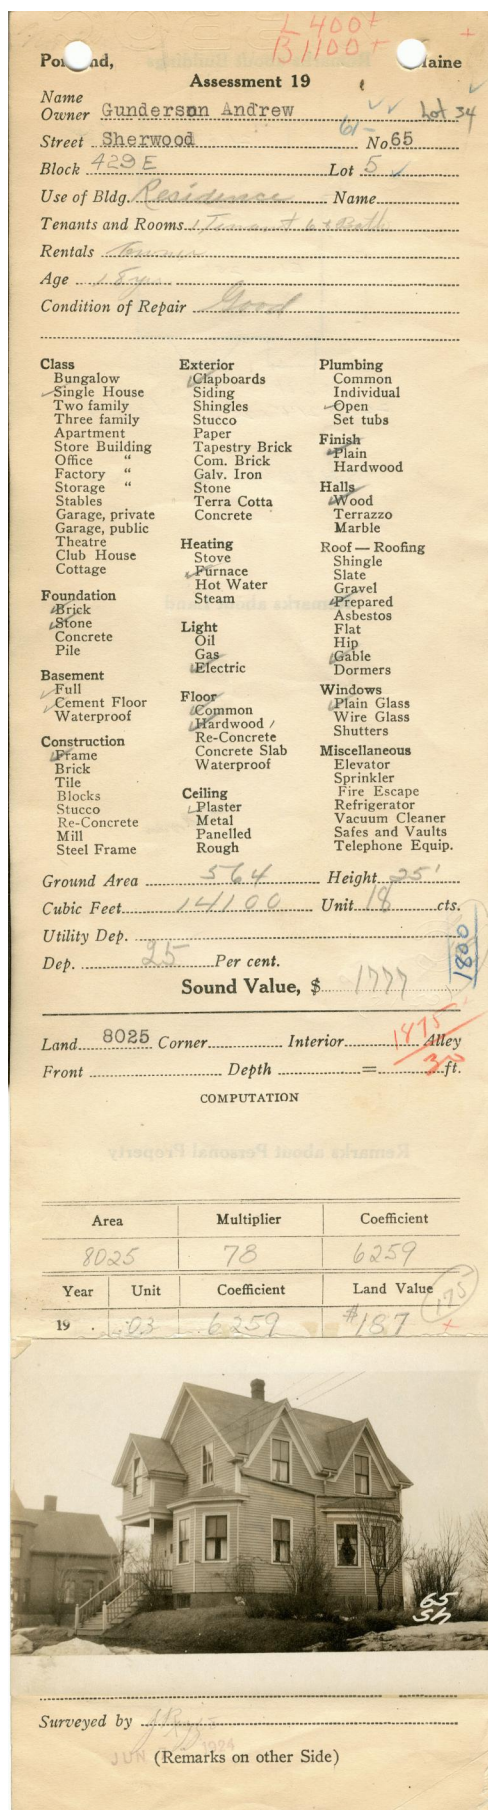 L 400 +
B 1100 +
+
Portland, Maine
Assessment 19
Name
Owner Gunderson Andrew Lot 34
Street Sherwood 61- No. 65
Block 429 E Lot 5
Use of Bldg. Residence Name
Tenants and Rooms 1 Tenant 6 + Bath
Rentals Owner
Age 18 yrs
Condition of Repair Good
Class
Bungalow
Single House
Two family
Three family
Apartment
Store Building
Office "
Factory "
Storage "
Stables
Garage, private
Garage, public
Theatre
Club House
Cottage
Foundation
Brick
Stone
Concrete
Pile
Basement
Full
Cement Floor
Waterproof
Construction
Frame
Brick
Tile
Blocks
Stucco
Re-Concrete
Mill
Steel Frame
Exterior
Clapboards
Siding
Shingles
Stucco
Paper
Tapestry Brick
Com. Brick
Galv. Iron
Stone
Terra Cotta
Concrete
Heating
Stove
Furnace
Hot Water
Steam
Light
Oil
Gas
Electric
Floor
Common
Hardwood /
Re-Concrete
Concrete Slab
Waterproof
Ceiling
Plaster
Metal
Panelled
Rough
Plumbing
Common
Individual
Open
Set tubs
Finish
Plain
Hardwood
Halls
Wood
Terrazzo
Marble
Roof — Roofing
Shingle
Slate
Gravel
Prepared
Asbestos
Flat
Hip
Gable
Dormers
Windows
Plain Glass
Wire Glass
Shutters
Miscellaneous
Elevator
Sprinkler
Fire Escape
Refrigerator
Vacuum Cleaner
Safes and Vaults
Telephone Equip.
Ground Area 564 Height 25'
Cubic Feet 14100 Unit 18 cts.
Utility Dep.
Dep. 25 Per cent.
1800
Sound Value, $ 1777
Land 8025 Corner Interior Alley
1875
30
Front Depth = ft.
COMPUTATION
Area Multiplier Coefficient
8025 78 6259
Year Unit Coefficient Land Value
175
19 .03 6259 $187 +
65
Sh
Surveyed by
JUN 1924
(Remarks on other Side)